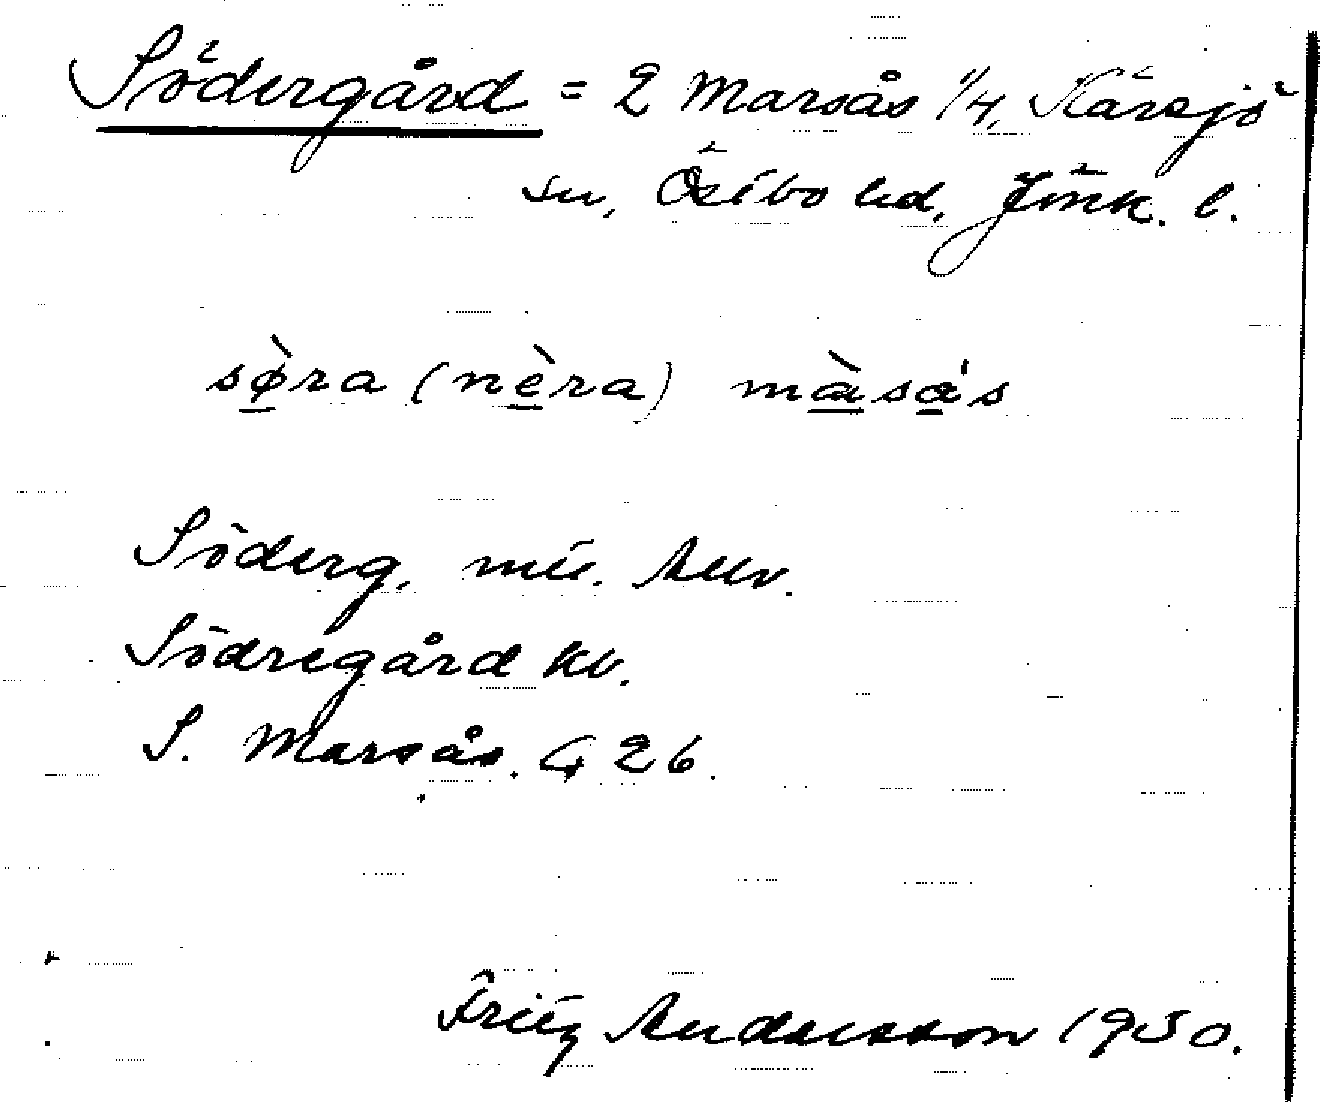 Södergård = 2 Marsås 1/4, Kärsjö
sn, Östbo hd, Jönk. l.
sø̀ra (nèra) màsás
Söderg. mtl. Anv.
Södregård kv.
S. Marsås. G 26.
Fritz Andersson 1950.